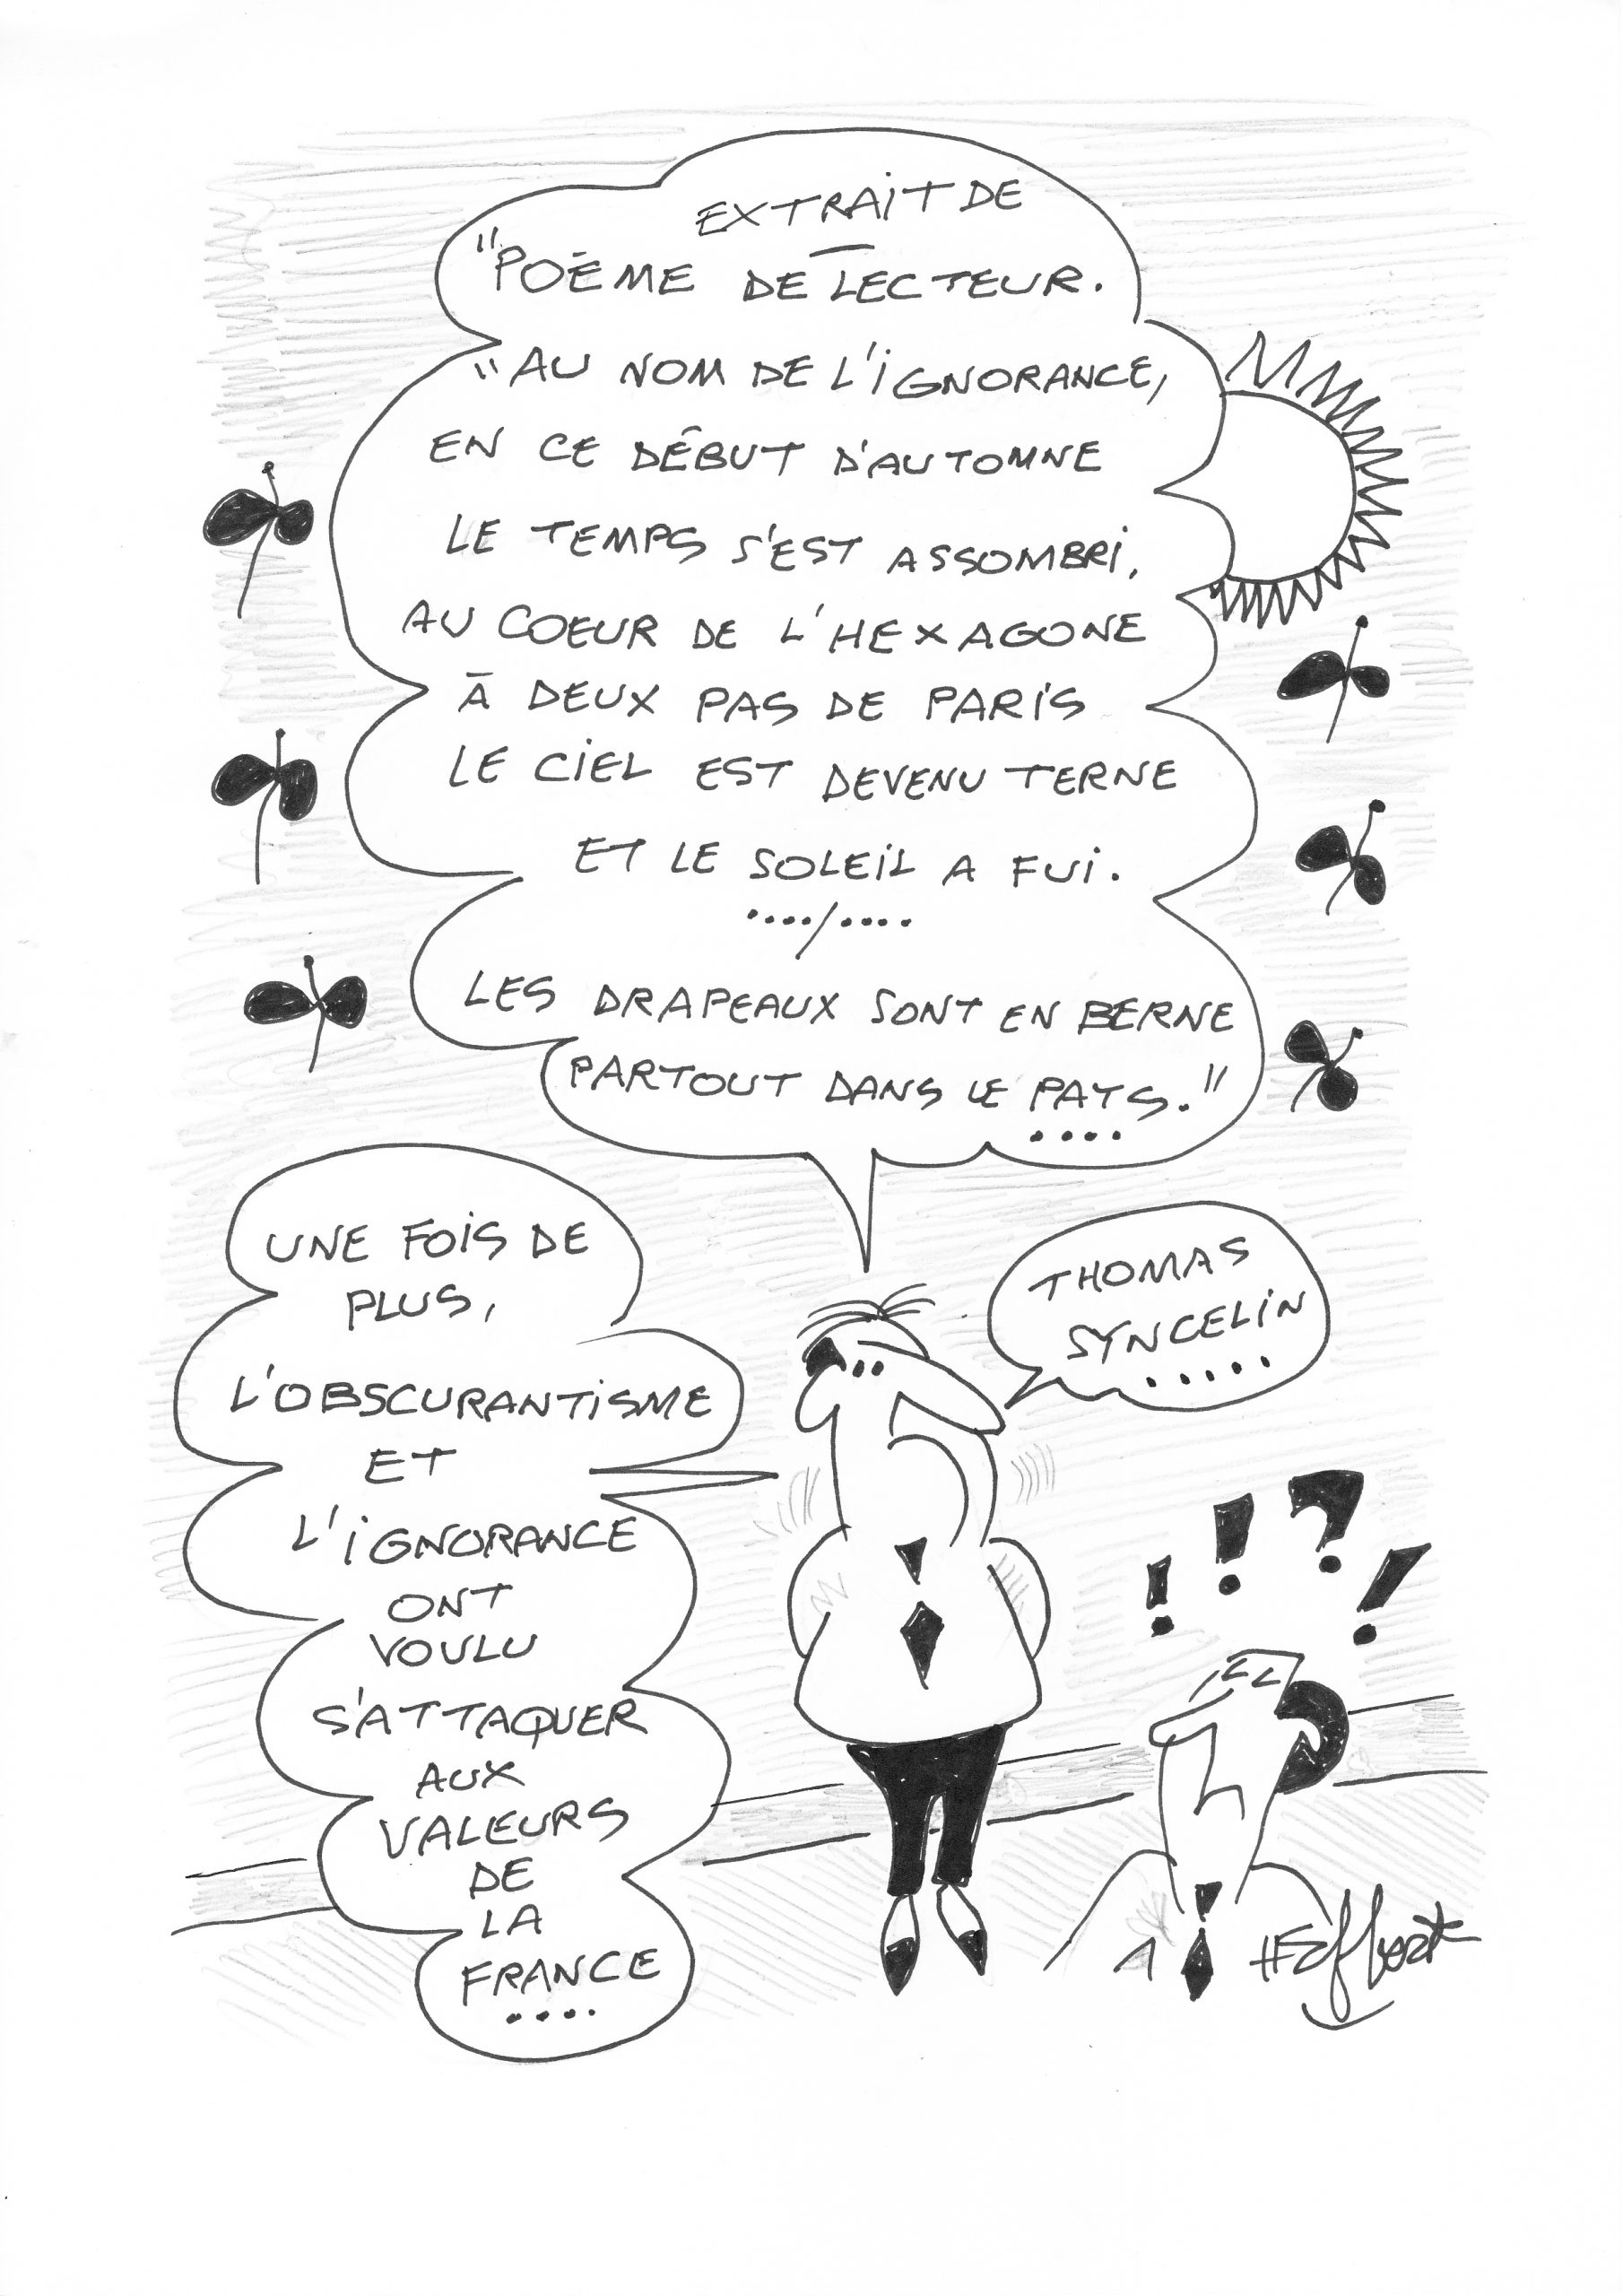 EXTRAIT DE
"POÈME DE LECTEUR.
"AU NOM DE L'IGNORANCE,
EN CE DÉBUT D'AUTOMNE
LE TEMPS S'EST ASSOMBRI,
AU COEUR DE L'HEXAGONE
À DEUX PAS DE PARIS
LE CIEL EST DEVENU TERNE
ET LE SOLEIL A FUI.
..../....
LES DRAPEAUX SONT EN BERNE
PARTOUT DANS LE PAYS."
....
THOMAS
SYNCELIN
.....
UNE FOIS DE
PLUS,
L'OBSCURANTISME
ET
L'IGNORANCE
ONT
VOULU
S'ATTAQUER
AUX
VALEURS
DE
LA
FRANCE
....
! ! ? !